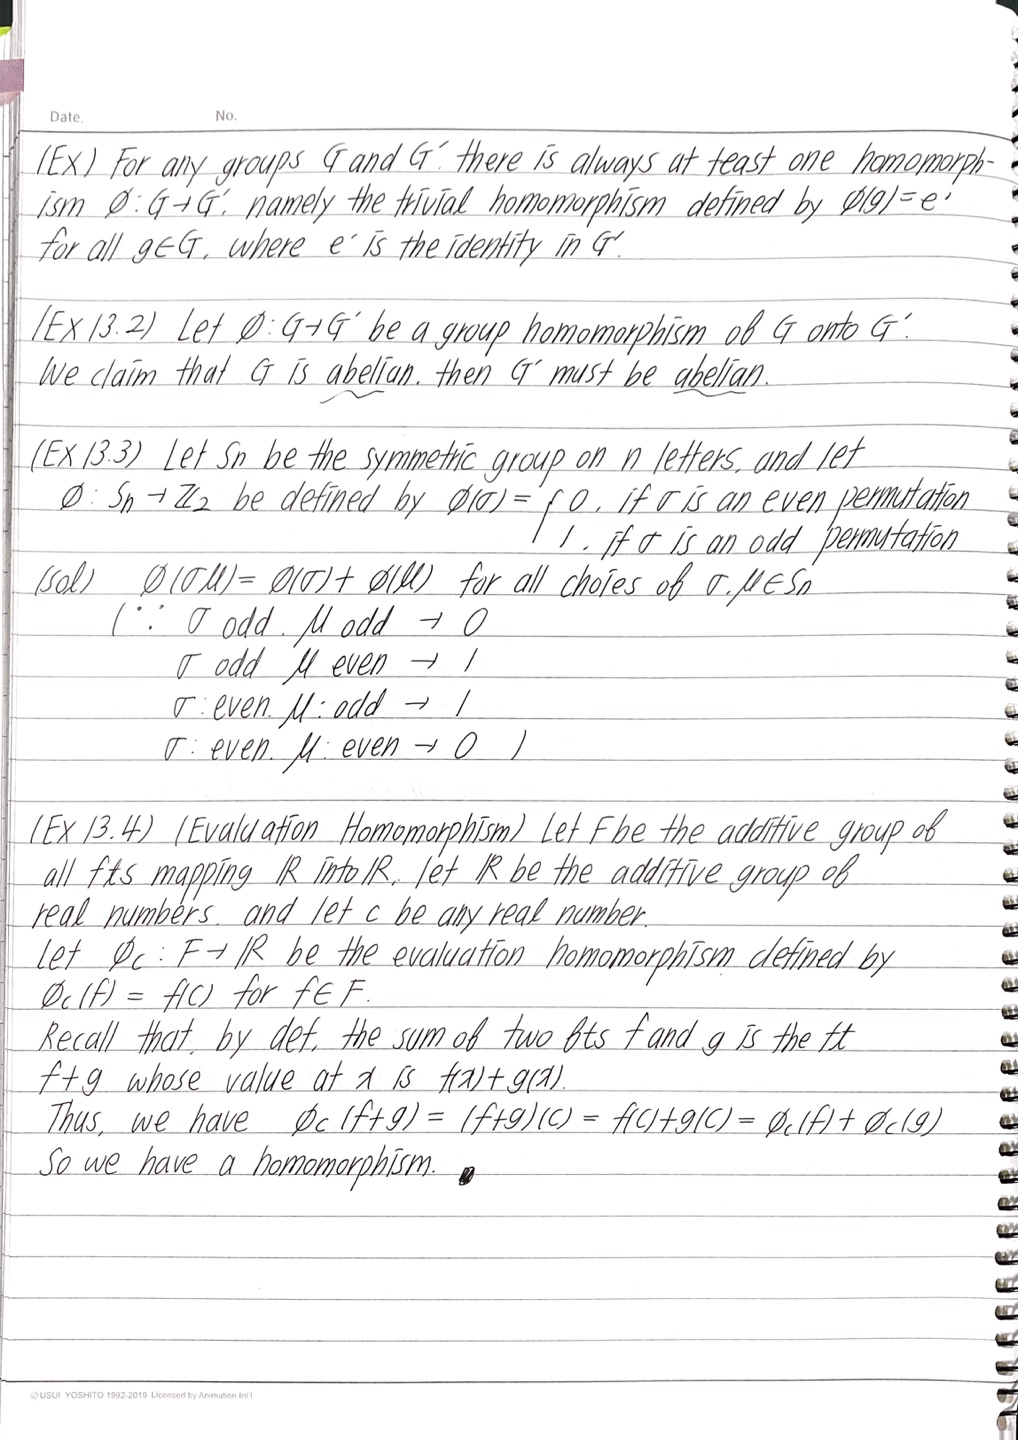 Date. No.
(Ex) For any groups G and G′. there is always at least one homomorph-
ism Ø : G→G′. namely the trivial homomorphism defined by Ø(g)=e′
for all g∈G, where e′ is the identity in G′.
(Ex 13.2) Let Ø : G→G′ be a group homomorphism of G onto G′.
We claim that G is abelian. then G′ must be abelian.
(Ex 13.3) Let Sn be the symmetric group on n letters, and let
Ø : Sn → ℤ2 be defined by Ø(σ) = { 0. if σ is an even permutation
1. if σ is an odd permutation
(sol) Ø(σμ) = Ø(σ) + Ø(μ) for all choies of σ, μ∈Sn
(∵ σ odd. μ odd → 0
σ odd μ even → 1
σ : even. μ : odd → 1
σ : even. μ : even → 0 )
(Ex 13.4) (Evaluation Homomorphism) Let F be the additive group of
all fts mapping ℝ into ℝ, let ℝ be the additive group of
real numbers. and let c be any real number.
Let Øc : F→ℝ be the evaluation homomorphism defined by
Øc(f) = f(c) for f∈F.
Recall that, by def, the sum of two fts f and g is the ft
f+g whose value at x is f(x)+g(x).
Thus, we have Øc(f+g) = (f+g)(c) = f(c)+g(c) = Øc(f) + Øc(g)
So we have a homomorphism.
© USUI YOSHITO 1992-2019 Licensed by Animation Int'l